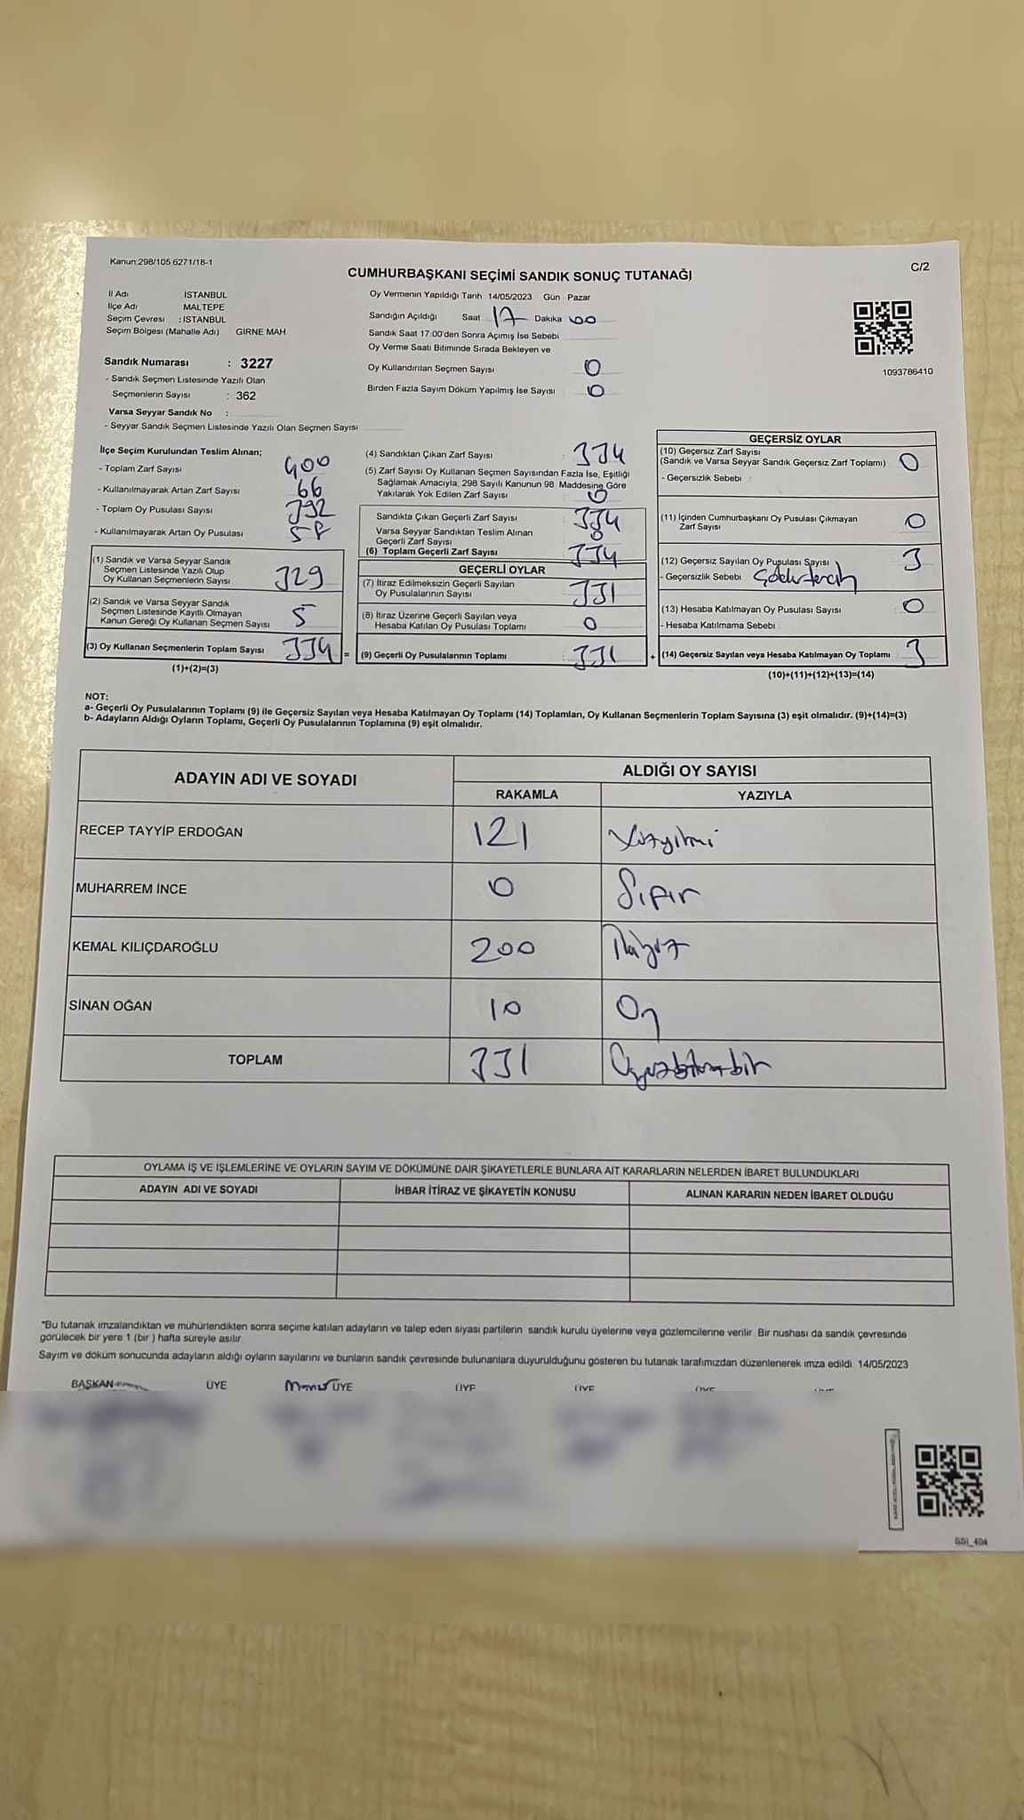 Kanun:298/105 6271/18-1
C/2
CUMHURBAŞKANI SEÇİMİ SANDIK SONUÇ TUTANAĞI
İl Adı İSTANBUL
İlçe Adı MALTEPE
Seçim Çevresi : İSTANBUL
Seçim Bölgesi (Mahalle Adı) GİRNE MAH
Oy Vermenin Yapıldığı Tarih 14/05/2023 Gün Pazar
Sandığın Açıldığı Saat 17 Dakika 00
Sandık Saat 17:00'den Sonra Açımış İse Sebebi
Oy Verme Saati Bitiminde Sırada Bekleyen ve
Oy Kullandırılan Seçmen Sayısı 0
Birden Fazla Sayım Döküm Yapılmış İse Sayısı 0
1093786410
Sandık Numarası : 3227
- Sandık Seçmen Listesinde Yazılı Olan
Seçmenlerin Sayısı : 362
Varsa Seyyar Sandık No :
- Seyyar Sandık Seçmen Listesinde Yazılı Olan Seçmen Sayısı
İlçe Seçim Kurulundan Teslim Alınan;
- Toplam Zarf Sayısı 400
- Kullanılmayarak Artan Zarf Sayısı 66
- Toplam Oy Pusulası Sayısı 392
- Kullanılmayarak Artan Oy Pusulası 58
(1) Sandık ve Varsa Seyyar Sandık
Seçmen Listesinde Yazılı Olup
Oy Kullanan Seçmenlerin Sayısı 329
(2) Sandık ve Varsa Seyyar Sandık
Seçmen Listesinde Kayıtlı Olmayan
Kanun Gereği Oy Kullanan Seçmen Sayısı 5
(3) Oy Kullanan Seçmenlerin Toplam Sayısı 334 =
(1)+(2)=(3)
(4) Sandıktan Çıkan Zarf Sayısı 334
(5) Zarf Sayısı Oy Kullanan Seçmen Sayısından Fazla İse, Eşitliği
Sağlamak Amacıyla, 298 Sayılı Kanunun 98. Maddesine Göre
Yakılarak Yok Edilen Zarf Sayısı 0
Sandıkta Çıkan Geçerli Zarf Sayısı 334
Varsa Seyyar Sandıktan Teslim Alınan
Geçerli Zarf Sayısı 0
(6) Toplam Geçerli Zarf Sayısı 334
GEÇERLİ OYLAR
(7) İtiraz Edilmeksizin Geçerli Sayılan
Oy Pusulalarının Sayısı 331
(8) İtiraz Üzerine Geçerli Sayılan veya
Hesaba Katılan Oy Pusulası Toplamı 0
(9) Geçerli Oy Pusulalarının Toplamı 331 +
GEÇERSİZ OYLAR
(10) Geçersiz Zarf Sayısı
(Sandık ve Varsa Seyyar Sandık Geçersiz Zarf Toplamı) 0
- Geçersizlik Sebebi
(11) İçinden Cumhurbaşkanı Oy Pusulası Çıkmayan
Zarf Sayısı 0
(12) Geçersiz Sayılan Oy Pusulası Sayısı 3
- Geçersizlik Sebebi
(13) Hesaba Katılmayan Oy Pusulası Sayısı 0
- Hesaba Katılmama Sebebi
(14) Geçersiz Sayılan veya Hesaba Katılmayan Oy Toplamı 3
(10)+(11)+(12)+(13)=(14)
NOT:
a- Geçerli Oy Pusulalarının Toplamı (9) ile Geçersiz Sayılan veya Hesaba Katılmayan Oy Toplamı (14) Toplamları, Oy Kullanan Seçmenlerin Toplam Sayısına (3) eşit olmalıdır. (9)+(14)=(3)
b- Adayların Aldığı Oyların Toplamı, Geçerli Oy Pusulalarının Toplamına (9) eşit olmalıdır.
ADAYIN ADI VE SOYADI ALDIĞI OY SAYISI
RAKAMLA YAZIYLA
RECEP TAYYİP ERDOĞAN 121
MUHARREM İNCE 0 Sıfır
KEMAL KILIÇDAROĞLU 200 İkiyüz
SİNAN OĞAN 10 On
TOPLAM 331 Üçyüzotuzbir
OYLAMA İŞ VE İŞLEMLERİNE VE OYLARIN SAYIM VE DÖKÜMÜNE DAİR ŞİKAYETLERLE BUNLARA AİT KARARLARIN NELERDEN İBARET BULUNDUKLARI
ADAYIN ADI VE SOYADI İHBAR İTİRAZ VE ŞİKAYETİN KONUSU ALINAN KARARIN NEDEN İBARET OLDUĞU
"Bu tutanak imzalandıktan ve mühürlendikten sonra seçime katılan adayların ve talep eden siyasi partilerin sandık kurulu üyelerine veya gözlemcilerine verilir. Bir nüshası da sandık çevresinde
görülecek bir yere 1 (bir ) hafta süreyle asılır.
Sayım ve döküm sonucunda adayların aldığı oyların sayılarını ve bunların sandık çevresinde bulunanlara duyurulduğunu gösteren bu tutanak tarafımızdan düzenlenerek imza edildi. 14/05/2023
BAŞKAN ÜYE ÜYE ÜYE ÜYE ÜYE